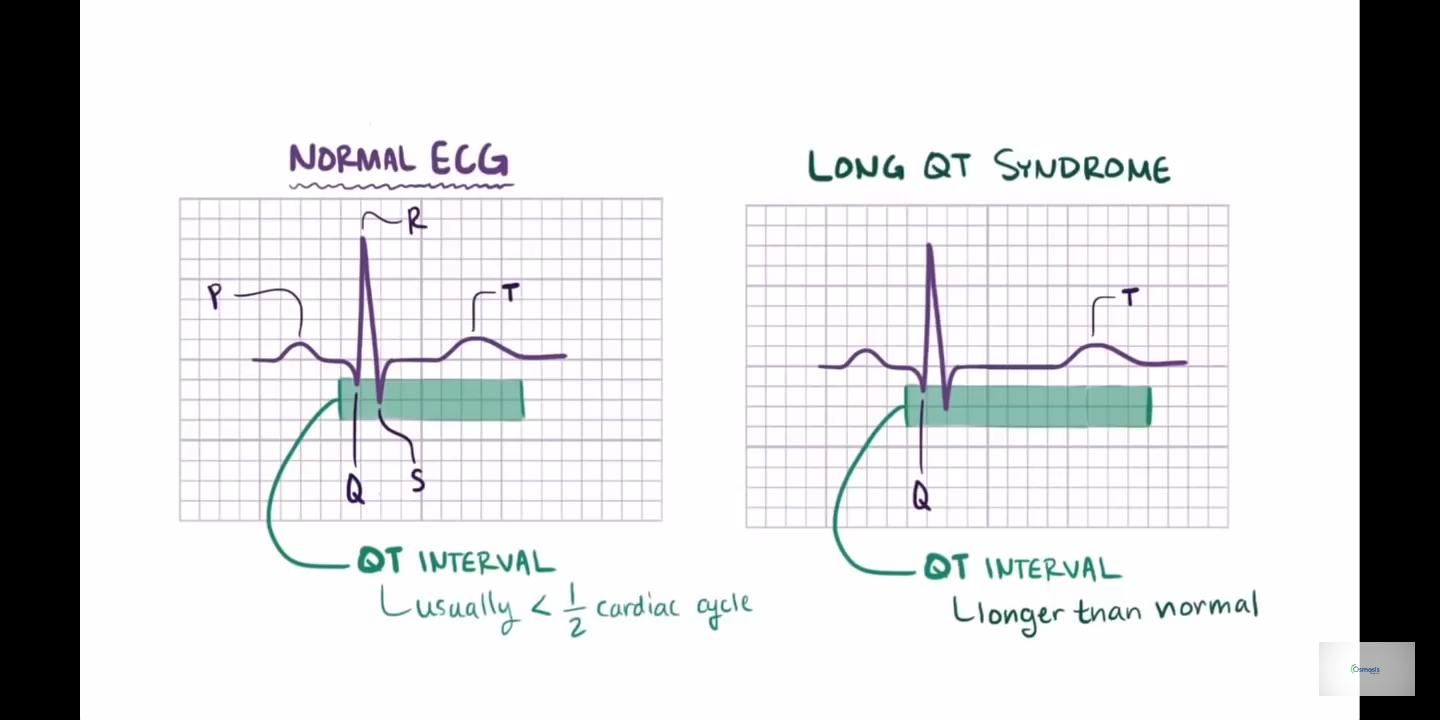 NORMAL ECG
R
P
T
Q
S
QT INTERVAL
usually < 1/2 cardiac cycle
LONG QT SYNDROME
T
Q
QT INTERVAL
longer than normal
Osmosis